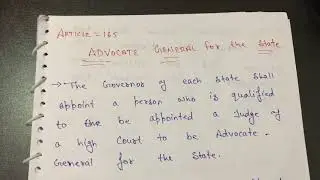 ARTICLE = 165
ADVOCATE GENERAL for the State
→ The Governor of each state shall
appoint a person who is qualified
to be appointed a Judge of
a High Court to be Advocate -
General for the State.